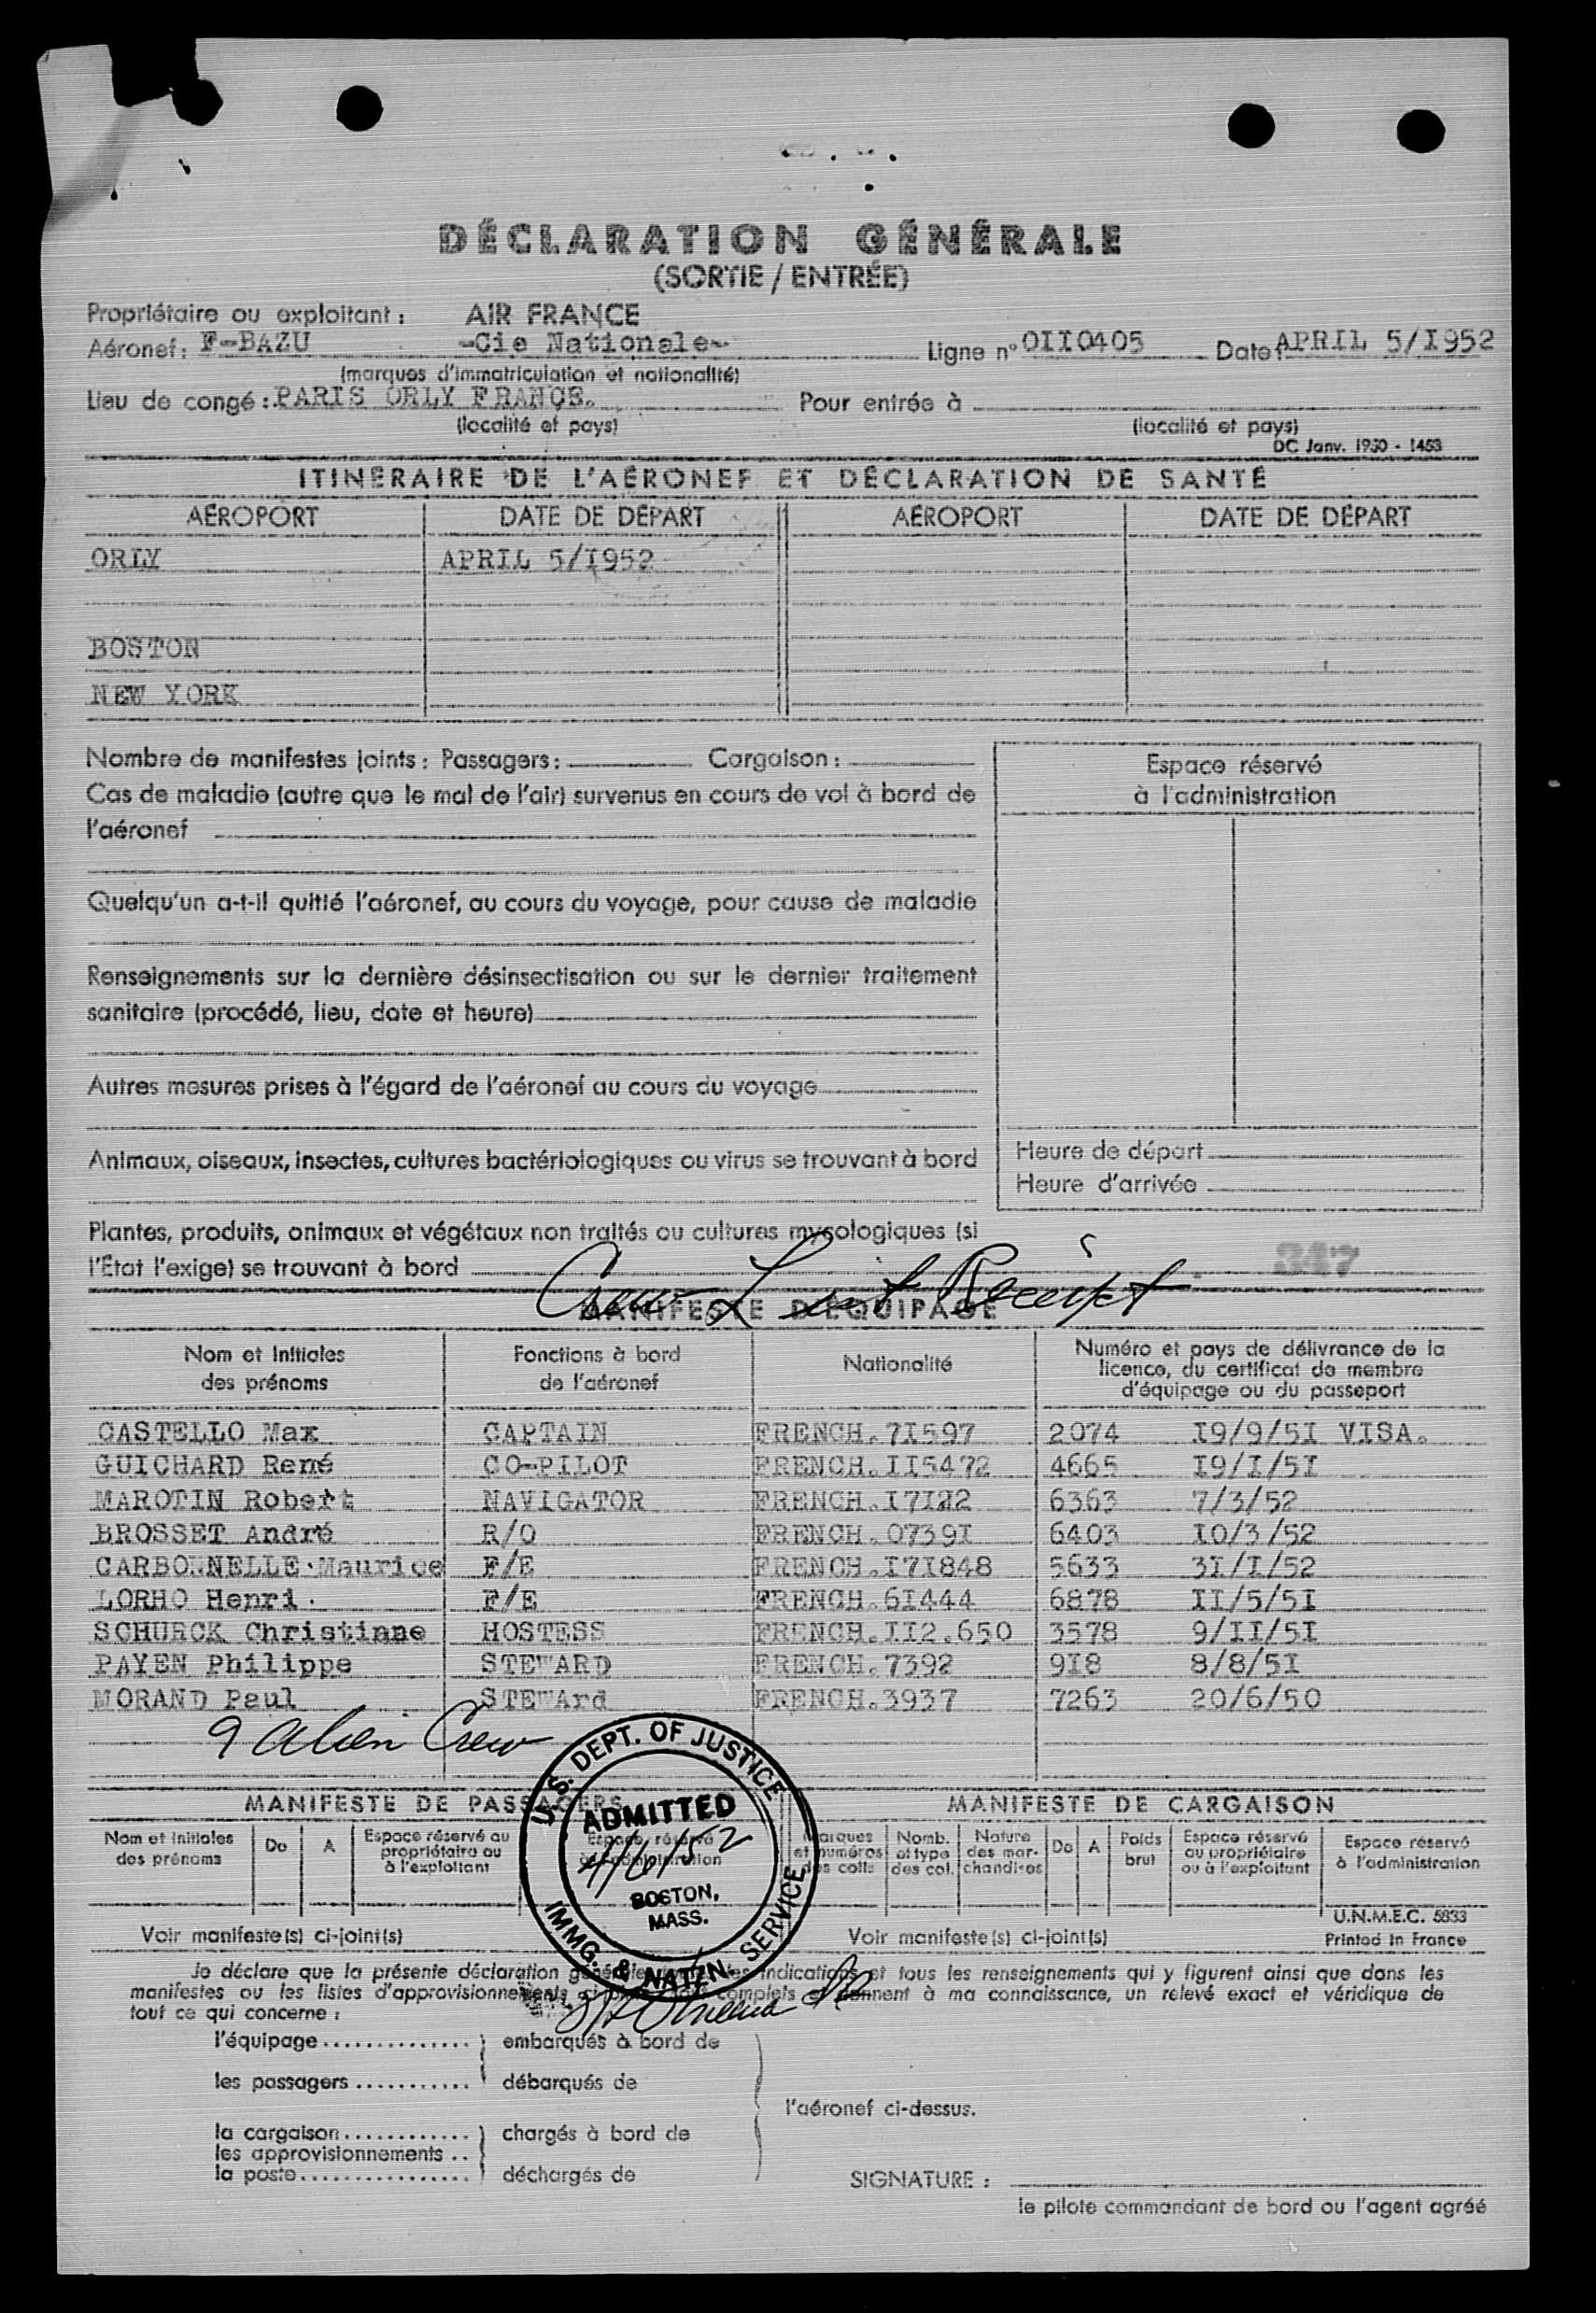 DÉCLARATION GÉNÉRALE
(SORTIE / ENTRÉE)
Propriétaire ou exploitant : AIR FRANCE
Aéronef : F-BAZU -Cie Nationale- Ligne n° OII0405 Date APRIL 5/I952
(marques d'immatriculation et nationalité)
Lieu de congé : PARIS ORLY FRANCE. Pour entrée à
(localité et pays) (localité et pays)
DC Janv. 1950 - 1453
ITINÉRAIRE DE L'AÉRONEF ET DÉCLARATION DE SANTÉ
AÉROPORT DATE DE DÉPART AÉROPORT DATE DE DÉPART
ORLY APRIL 5/I952
BOSTON
NEW YORK
Nombre de manifestes joints : Passagers : Cargaison :
Espace réservé
à l'administration
Cas de maladie (autre que le mal de l'air) survenus en cours de vol à bord de
l'aéronef
Quelqu'un a-t-il quitté l'aéronef, au cours du voyage, pour cause de maladie
Renseignements sur la dernière désinsectisation ou sur le dernier traitement
sanitaire (procédé, lieu, date et heure)
Autres mesures prises à l'égard de l'aéronef au cours du voyage
Animaux, oiseaux, insectes, cultures bactériologiques ou virus se trouvant à bord
Heure de départ
Heure d'arrivée
Plantes, produits, animaux et végétaux non traités ou cultures mycologiques (si
l'État l'exige) se trouvant à bord
347
Crew List Receipt
MANIFESTE D'ÉQUIPAGE
Nom et Initiales des prénoms Fonctions à bord de l'aéronef Nationalité Numéro et pays de délivrance de la licence, du certificat de membre d'équipage ou du passeport
CASTELLO Max CAPTAIN FRENCH.7I597 2074 I9/9/5I VISA.
GUICHARD René CO-PILOT FRENCH.II5472 4665 I9/I/5I
MAROTIN Robert NAVIGATOR FRENCH.I7I22 6363 7/3/52
BROSSET André R/O FRENCH.0739I 6403 I0/3/52
CARBONNELLE Maurice F/E FRENCH.I7I848 5633 3I/I/52
LORHO Henri. F/E FRENCH.6I444 6878 II/5/5I
SCHURCK Christiane HOSTESS FRENCH.II2.650 3578 9/II/5I
PAYEN Philippe STEWARD FRENCH.7392 9I8 8/8/5I
MORAND Paul STEWArd FRENCH.3937 7263 20/6/50
9 alien Crew
U.S. DEPT. OF JUSTICE
ADMITTED
4/6/52
BOSTON,
MASS.
IMMG. & NATZN. SERVICE
MANIFESTE DE PASSAGERS MANIFESTE DE CARGAISON
Nom et Initiales des prénoms De A Espace réservé au propriétaire ou à l'exploitant Espace réservé à l'administration
Marques et numéros des colis Nomb. et type des col. Nature des mar- chandises De A Poids brut Espace réservé au propriétaire ou à l'exploitant Espace réservé à l'administration
U.N.M.E.C. 5833
Voir manifeste(s) ci-joint(s) Voir manifeste(s) ci-joint(s) Printed in France
Je déclare que la présente déclaration générale indications et tous les renseignements qui y figurent ainsi que dans les
manifestes ou les listes d'approvisionnements complets et donnent à ma connaissance, un relevé exact et véridique de
tout ce qui concerne :
l'équipage .............. embarqués à bord de
les passagers ........... débarqués de
l'aéronef ci-dessus.
la cargaison ............ chargés à bord de
les approvisionnements ..
la poste ................ déchargés de
SIGNATURE :
le pilote commandant de bord ou l'agent agréé